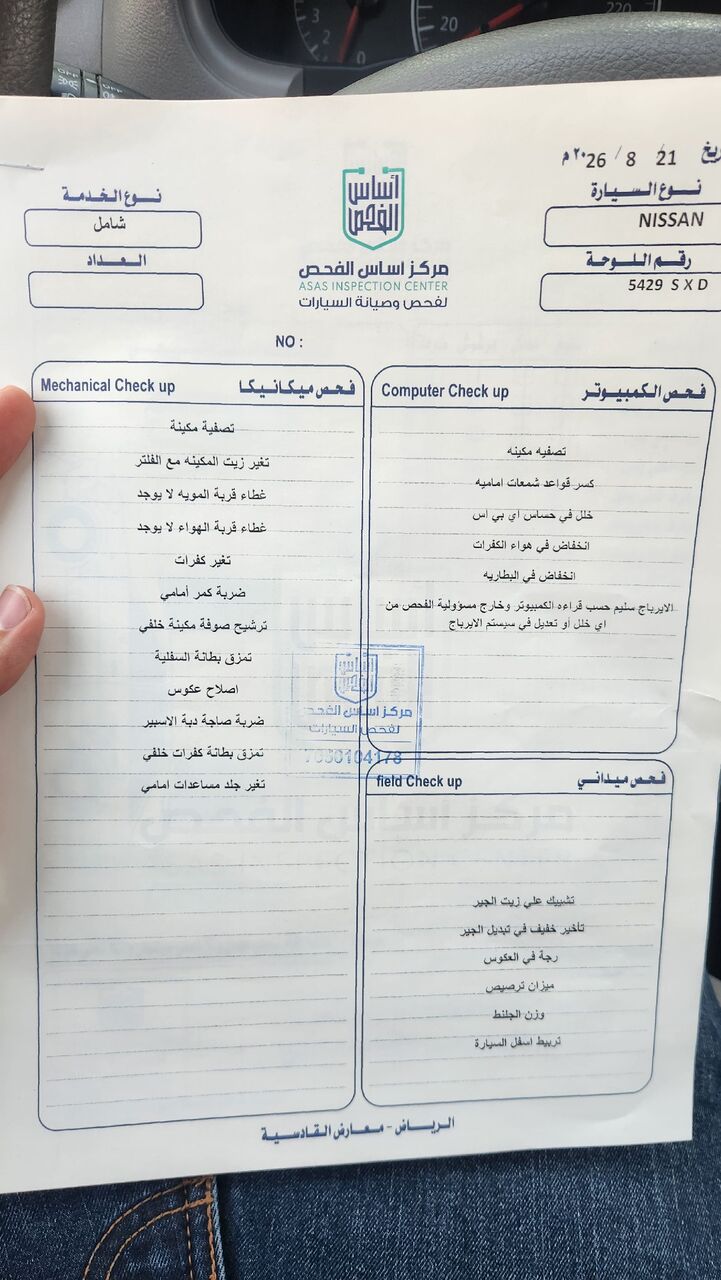 3
2
1
0
20
220
OFF
OFF
ريخ 21/ 8 / 26٢٠م
نوع السيارة
NISSAN
رقم اللوحة
5429 S X D
أساس الفحص
مركز اساس الفحص
ASAS INSPECTION CENTER
لفحص وصيانة السيارات
نوع الخدمة
شامل
العداد
NO :
فحص الكمبيوتر Computer Check up
تصفيه مكينه
كسر قواعد شمعات اماميه
خلل في حساس اي بي اس
انخفاض في هواء الكفرات
انخفاض في البطاريه
الايرباج سليم حسب قراءه الكمبيوتر وخارج مسؤولية الفحص من
اي خلل أو تعديل في سيستم الايرباج
فحص ميكانيكا Mechanical Check up
تصفية مكينة
تغير زيت المكينه مع الفلتر
غطاء قربة المويه لا يوجد
غطاء قربة الهواء لا يوجد
تغير كفرات
ضربة كمر أمامي
ترشيح صوفة مكينة خلفي
تمزق بطانة السفلية
اصلاح عكوس
ضربة صاجة دبة الاسبير
تمزق بطانة كفرات خلفي
تغير جلد مساعدات امامي
أساس الفحص
مركز اساس الفحص
لفحص السيارات
7050104178
فحص ميداني field Check up
تشييك علي زيت الجير
تأخير خفيف في تبديل الجير
رجة في العكوس
ميزان ترصيص
وزن الجلنط
تربيط اسفل السيارة
الرياض - معارض القادسية